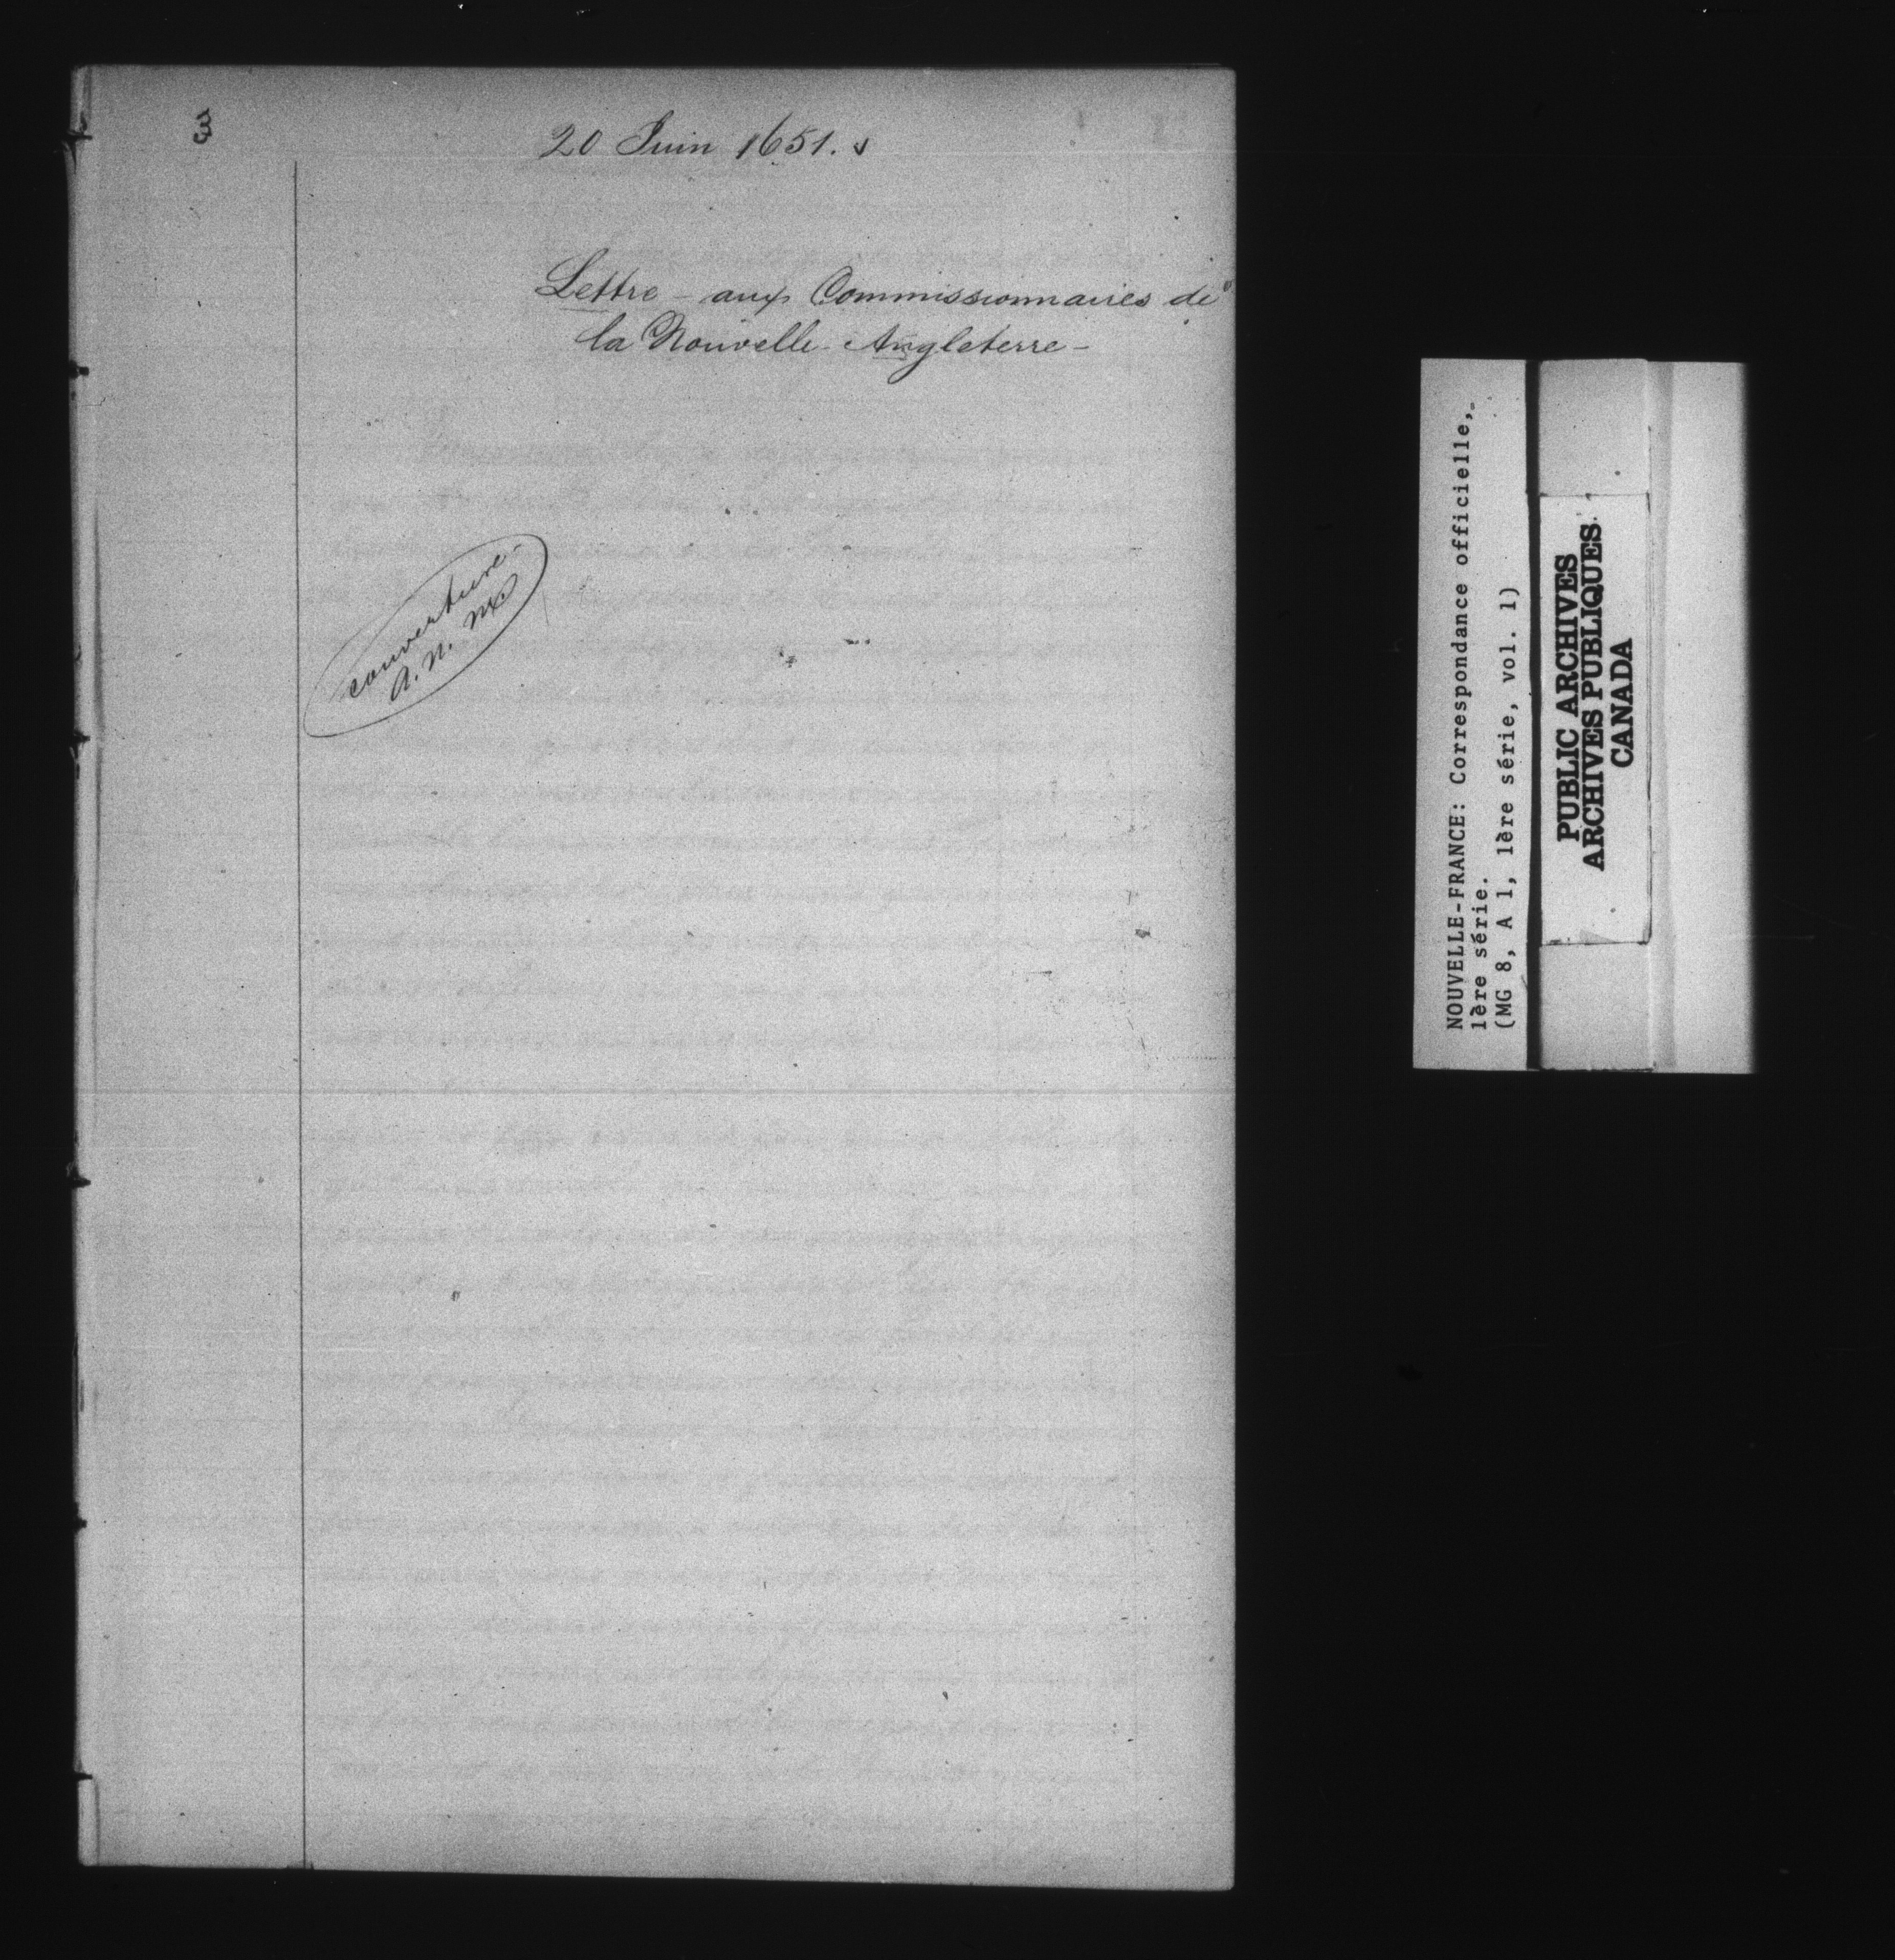 3
20 Juin 1651.
Lettre - aux Commissionnaires de
la Nouvelle-Angleterre -
couverture
a. n.
NOUVELLE-FRANCE: Correspondance officielle,
1ère série.
(MG 8, A 1, 1ère série, vol. 1)
PUBLIC ARCHIVES
ARCHIVES PUBLIQUES
CANADA